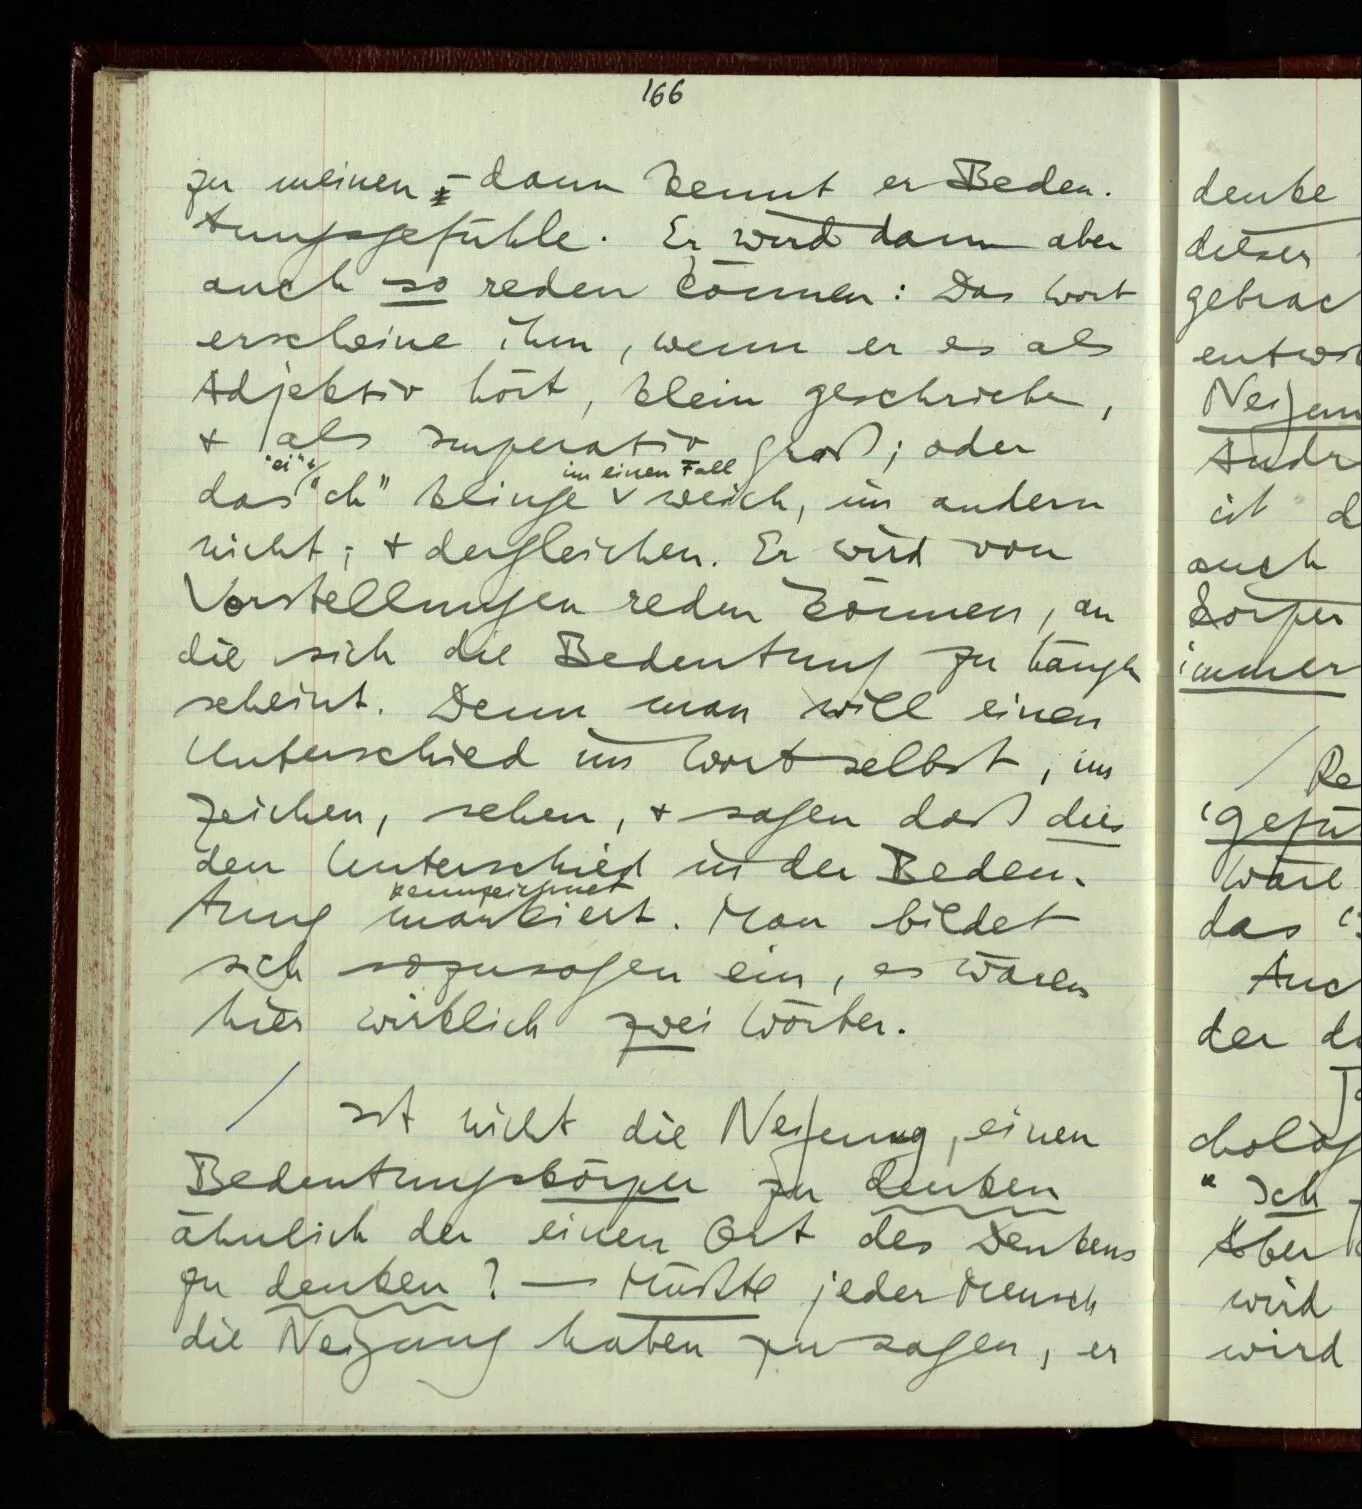 166
zu meinen – dann kennt er Bedeu-
tungsgefühle. Er wird dann aber
auch so reden können: Das Wort
erscheine ihm, wenn er es als
Adjektiv hört, klein geschrieben,
+ als Imperativ groß; oder
"ei" + im einen Fall
das "ch" klinge v weich, im andern
nicht; + dergleichen. Er wird von
Vorstellungen reden können, an
die sich die Bedeutung zu hängen
scheint. Denn man will einen
Unterschied im Wort selbst, im
Zeichen, sehen, + sagen daß dies
den Unterschied in der Bedeu-
kennzeichnet
tung markiert. Man bildet
sich sozusagen ein, es wären
hier wirklich zwei Wörter.
/ Ist nicht die Neigung, einen
Bedeutungskörper zu denken
ähnlich der einen Ort des Denkens
zu denken? — Müßte jeder Mensch
die Neigung haben zu sagen, er
denke
dieser
gebrac
entwi
Neigun
Andr
ist d
auch
Körper
immer
/ Re
'gefü
wäre
das
Auc
der d
cholog
"Ich
Aber
wird
wird